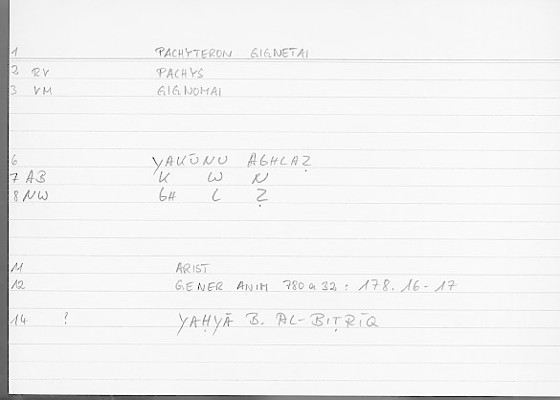 1 PACHYTERON GIGNETAI
2 RV PACHYS
3 VM GIGNOMAI
6 YAKŪNU AGHLAẒ
7 AB K W N
8 NW GH L Ẓ
11 ARIST
12 GENER ANIM 780 a 32 : 178.16-17
14 ? YAḤYĀ B. AL-BIṬRĪQ